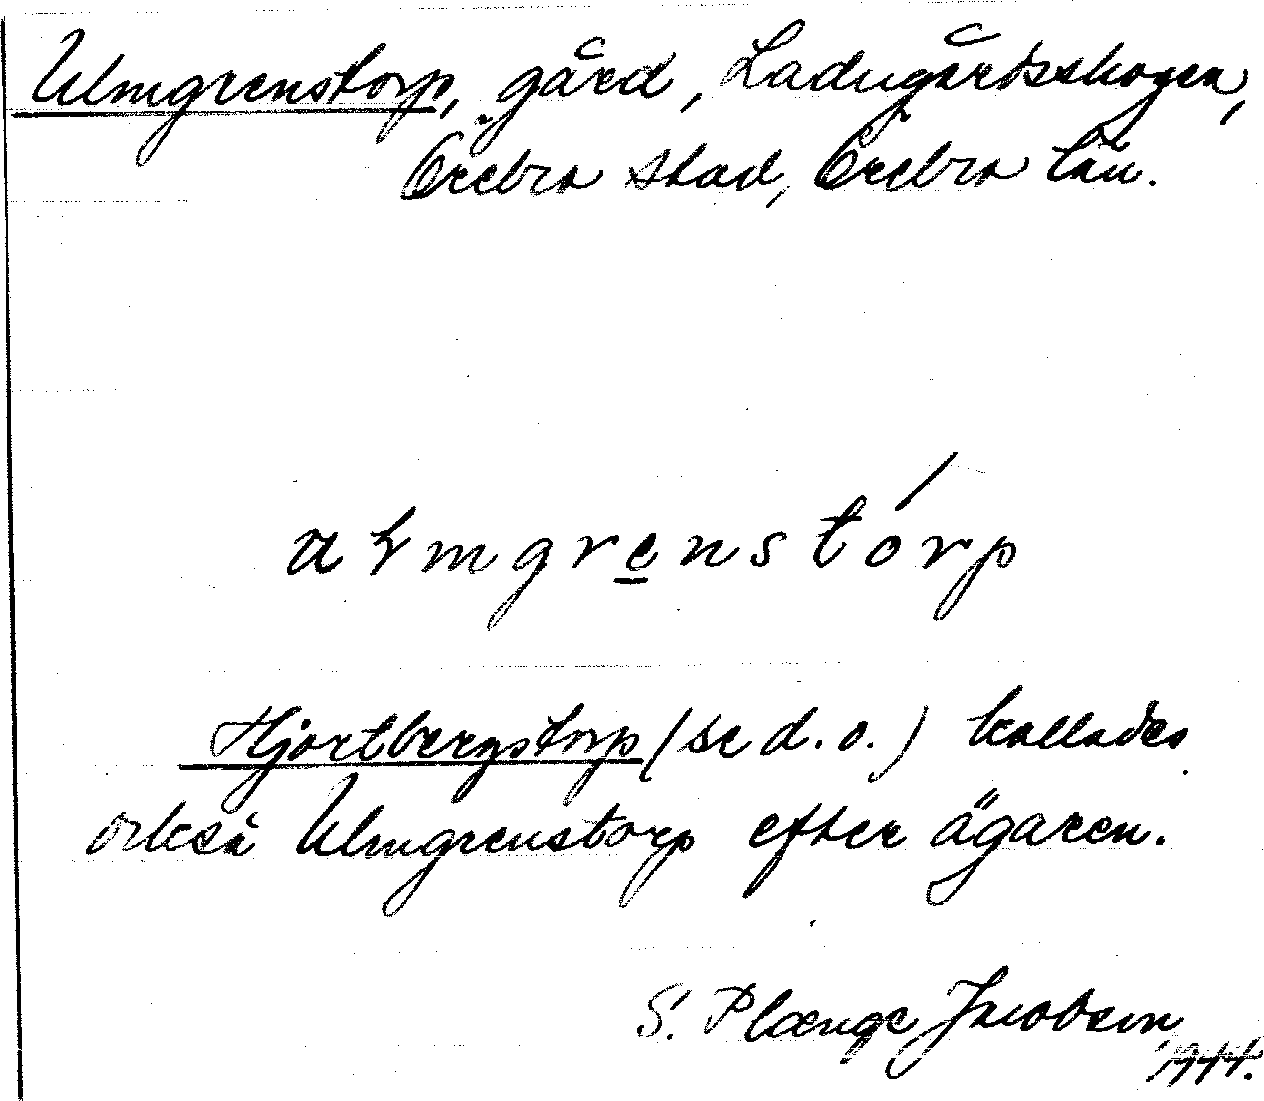 Ulmgrenstorp, gård, Ladugårdsskogen,
Örebro stad, Örebro län.
Hjortbergstorp (se d. o.) kallades
också Ulmgrenstorp efter ägaren.
S. Plænge Jacobson
1944.